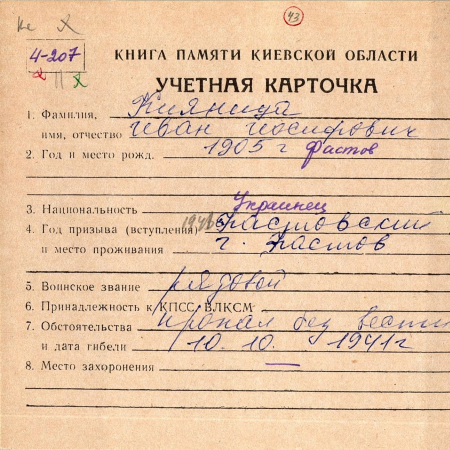 43
Ке Х
4-207
х П х
КНИГА ПАМЯТИ КИЕВСКОЙ ОБЛАСТИ
УЧЕТНАЯ КАРТОЧКА
1. Фамилия, Кияница
имя, отчество Иван Иосифович
2. Год и место рожд. 1905 г Фастов
3. Национальность Украинец
4. Год призыва (вступления) 1941 Фастовский
и место проживания г. Фастов
5. Воинское звание рядовой
6. Принадлежность к КПСС ВЛКСМ
7. Обстоятельства пропал без вести
и дата гибели 10.10. 1941г
8. Место захоронения —